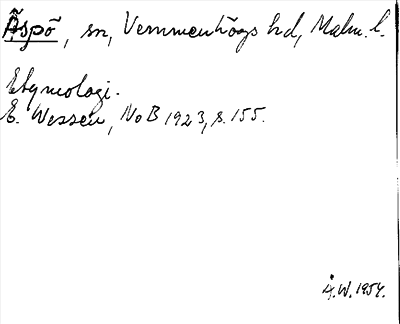 Äspö, sn, Vemmenhögs hd, Malm. l.
Etymologi.
E. Wessén, NoB 1923, s. 155.
Å.W. 1954.